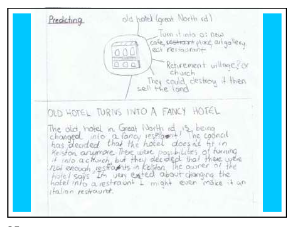 Predicting
old hotel (great North rd)
Turn it into a new
cafe, place, art gallery
restaurant
Retirement village? or
church
They could destroy it then
sell the land
OLD HOTEL TURNS INTO A FANCY HOTEL
The old hotel in Great North rd is being
changed into a fancy The council
has decided that the hotel doesn't fit in
Kelston anymore. There were possibilities of turning
it into a church, but they decided that there were
not enough in Kelston. The owner of the
hotel says I'm very about changing the
hotel into a restraunt I might even make it an
italian restraunt.